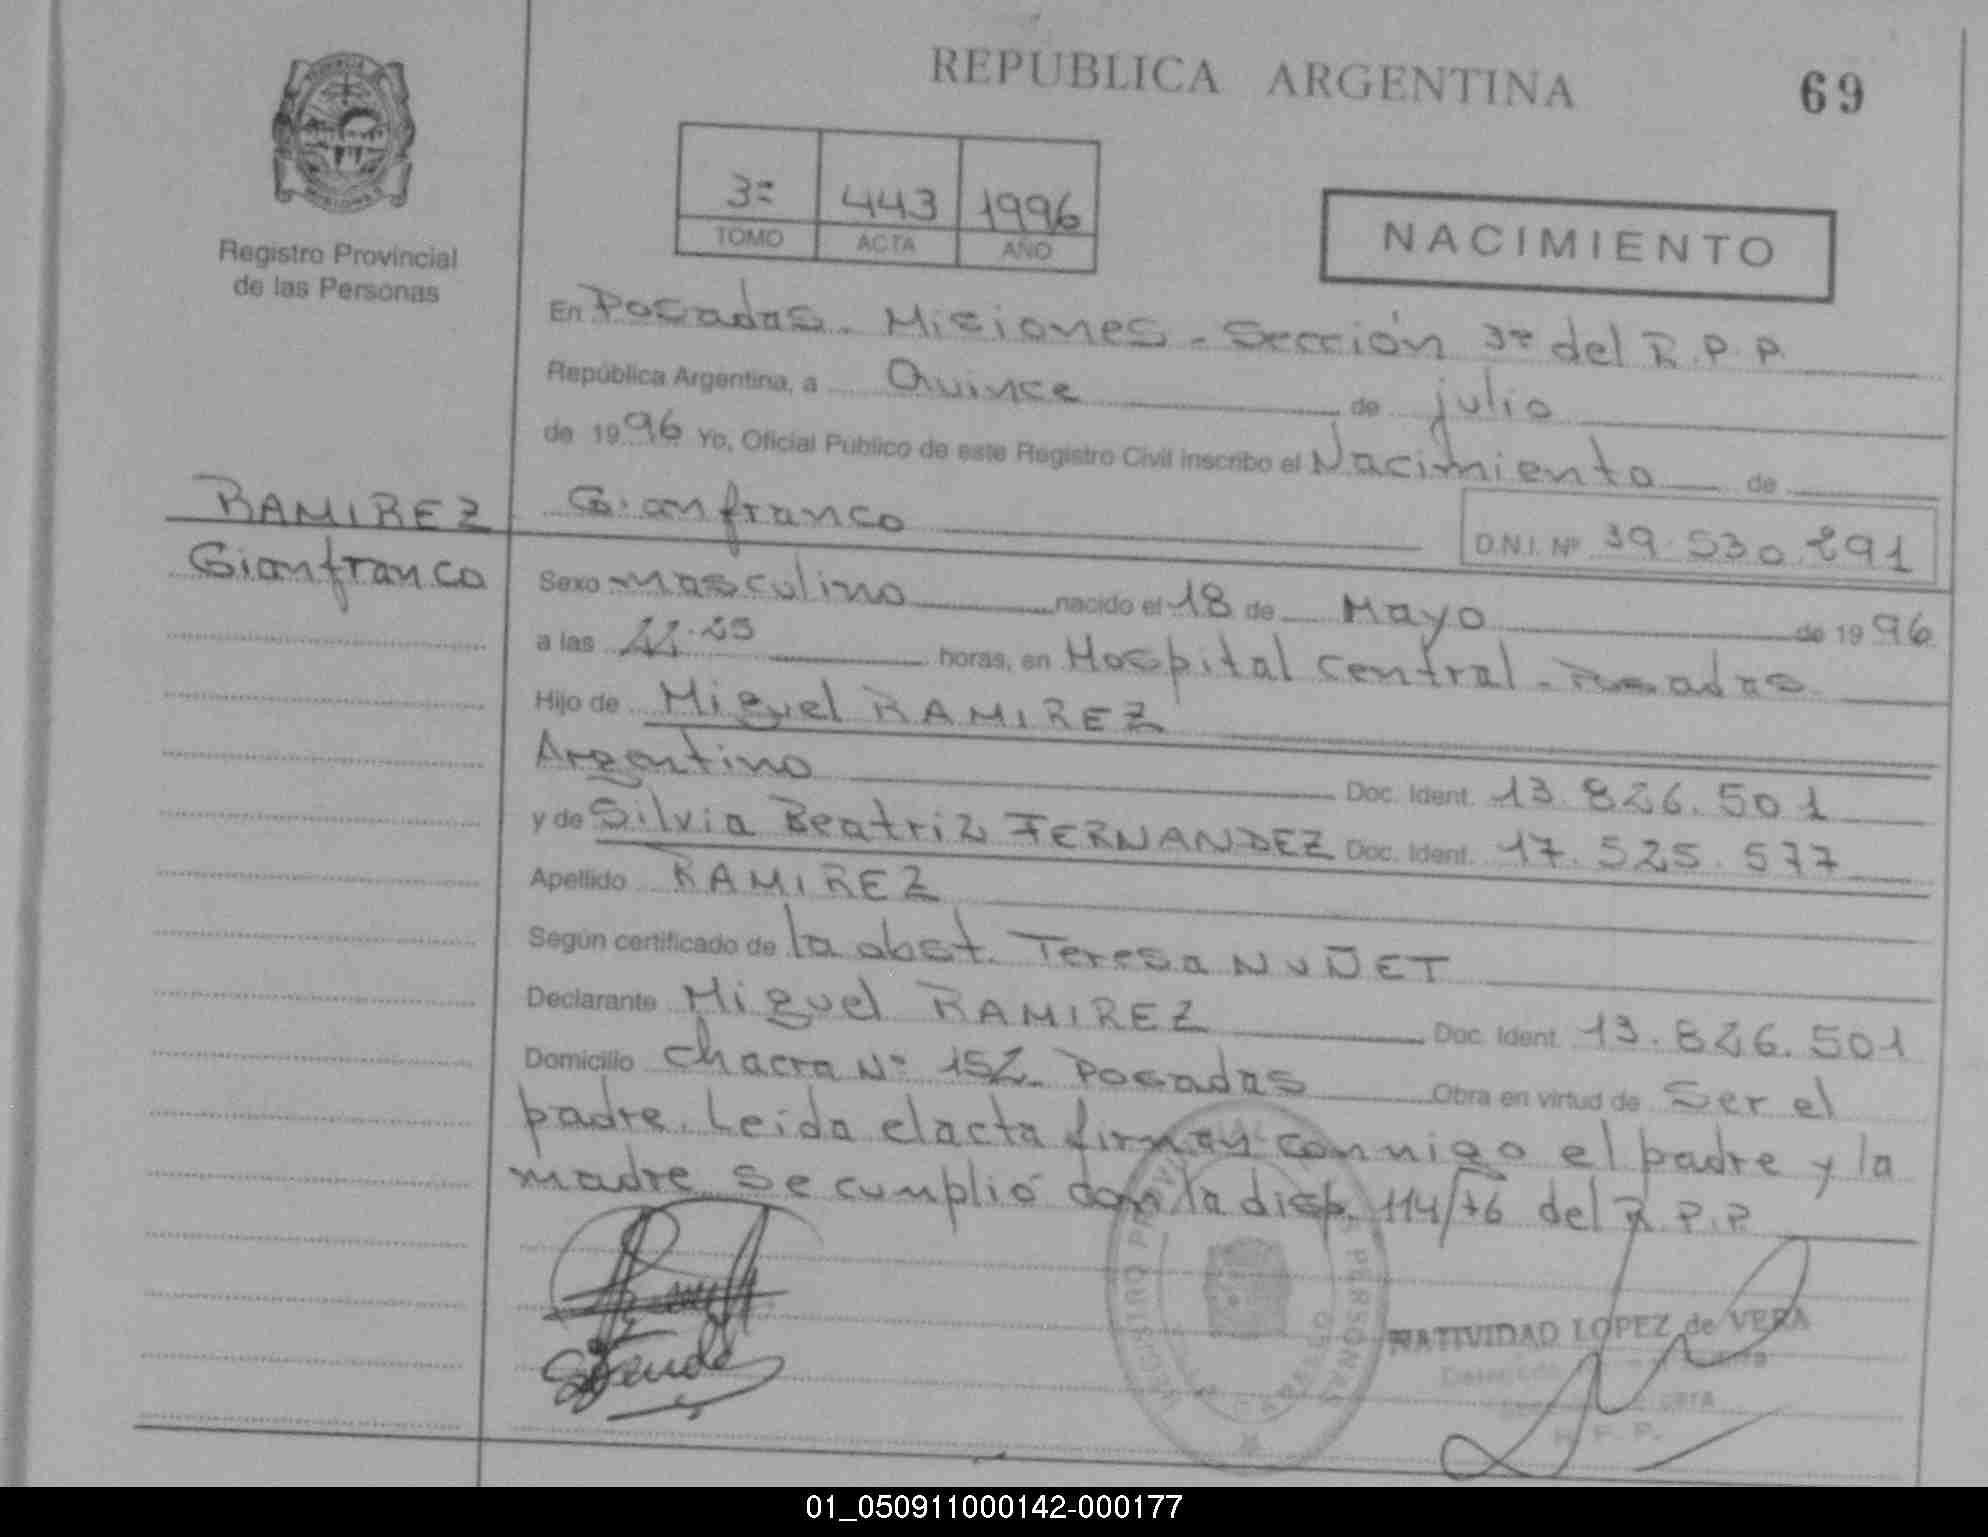 REPUBLICA ARGENTINA
69
Registro Provincial
de las Personas
3ª 443 1996
TOMO ACTA AÑO
NACIMIENTO
En Posadas - Misiones - Sección 3ª del R.P.P.
República Argentina, a Quince de julio
de 1996 Yo, Oficial Público de este Registro Civil inscribo el Nacimiento de
RAMIREZ
Gianfranco
Gianfranco
D.N.I. Nº 39.530.291
Sexo masculino nacido el 18 de Mayo de 1996
a las horas, en Hospital Central - Posadas
Hijo de Miguel RAMIREZ
Argentino Doc. Ident. 13.826.501
y de Silvia Beatriz FERNANDEZ Doc. Ident. 17.525.577
Apellido RAMIREZ
Según certificado de la obst. Teresa NUÑET
Declarante Miguel RAMIREZ Doc. Ident. 13.826.501
Domicilio Chacra Nº 152 Posadas Obra en virtud de Ser el
padre. Leida el acta firman conmigo el padre y la
madre se cumplió con la disp. 114/76 del R.P.P.
NATIVIDAD LOPEZ de VERA
01_050911000142-000177